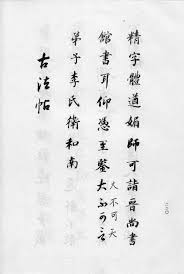 精字體遒媚師可詣晉尚書
館書耳仰憑至鑒大不可言
弟子李氏衛和南
古法帖